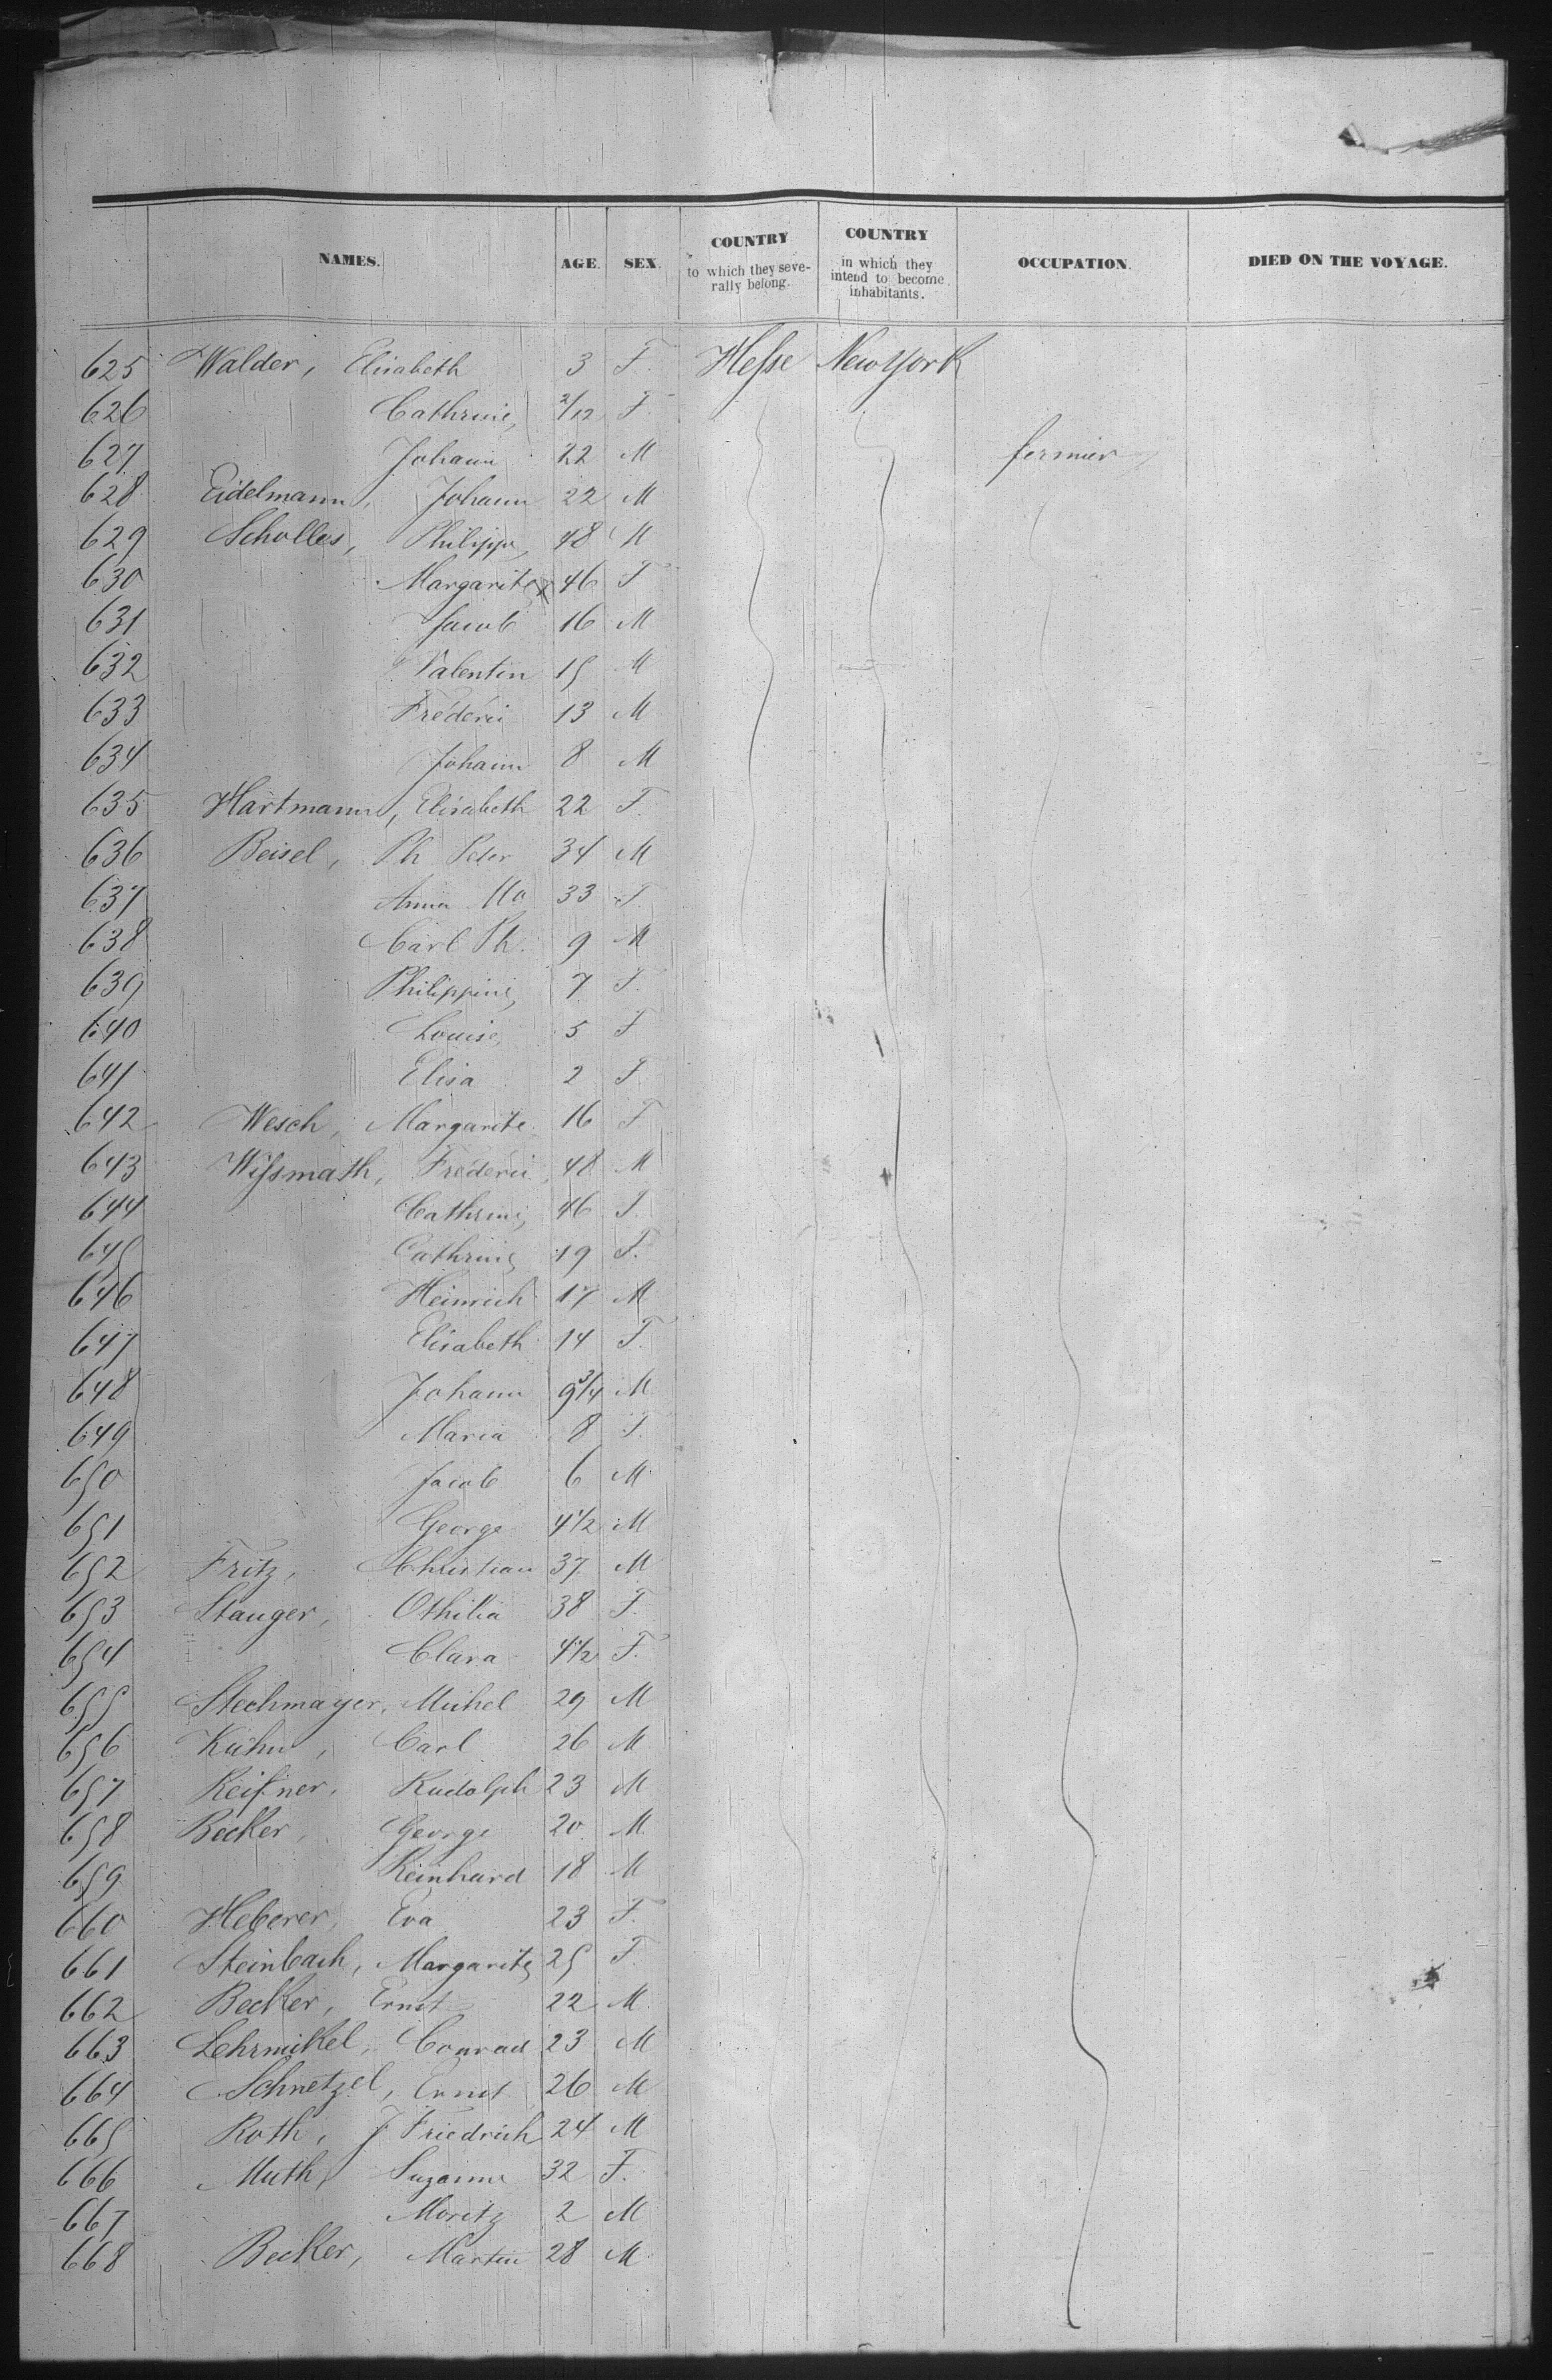 NAMES. AGE. SEX. COUNTRY to which they severally belong. COUNTRY in which they intend to become inhabitants. OCCUPATION. DIED ON THE VOYAGE.
625 Walder, Elisabeth 3 F. Hesse New York
626 Cathrine, 2/12 F.
627 Johann 22 M fermier
628 Eidelmann, Johann 22 M
629 Scholles, Philipp, 48 M
630 Margarite 46 F
631 Jacob 16 M
632 Valentin 15 M
633 Fréderic 13 M
634 Johann 8 M
635 Hartmann, Elisabeth 22 F.
636 Beisel, Ph Peter 34 M
637 Anna Ma 33 F.
638 Carl Ph. 9 M
639 Philippine, 7 F.
640 Louise, 5 F
641 Elisa 2 F
642 Wesch, Margarite 16 F
643 Wissmath, Fréderic 48 M
644 Cathrine, 46 F.
645 Cathrine 19 F.
646 Heinrich 17 M
647 Elisabeth 14 F.
648 Johann 9 3/4 M
649 Maria 8 F.
650 Jacob 6 M
651 George 4 1/2 M
652 Fritz, Christian 37 M
653 Stauger, Othilia 38 F.
654 Clara 4 1/2 F.
655 Stechmayer, Michel 29 M
656 Kühn, Carl 26 M
657 Reissner, Rudolph 23 M
658 Becker, George 20 M
659 Reinhard 18 M
660 Heberer, Eva 23 F.
661 Steinbach, Margarite 25 F.
662 Becker, Ernst 22 M
663 Lehrmikel, Conrad 23 M
664 Schnetzel, Ernst 26 M
665 Roth, J Friedrich 24 M
666 Muth, Suzanne 32 F.
667 Moritz 2 M
668 Becker, Martin 28 M